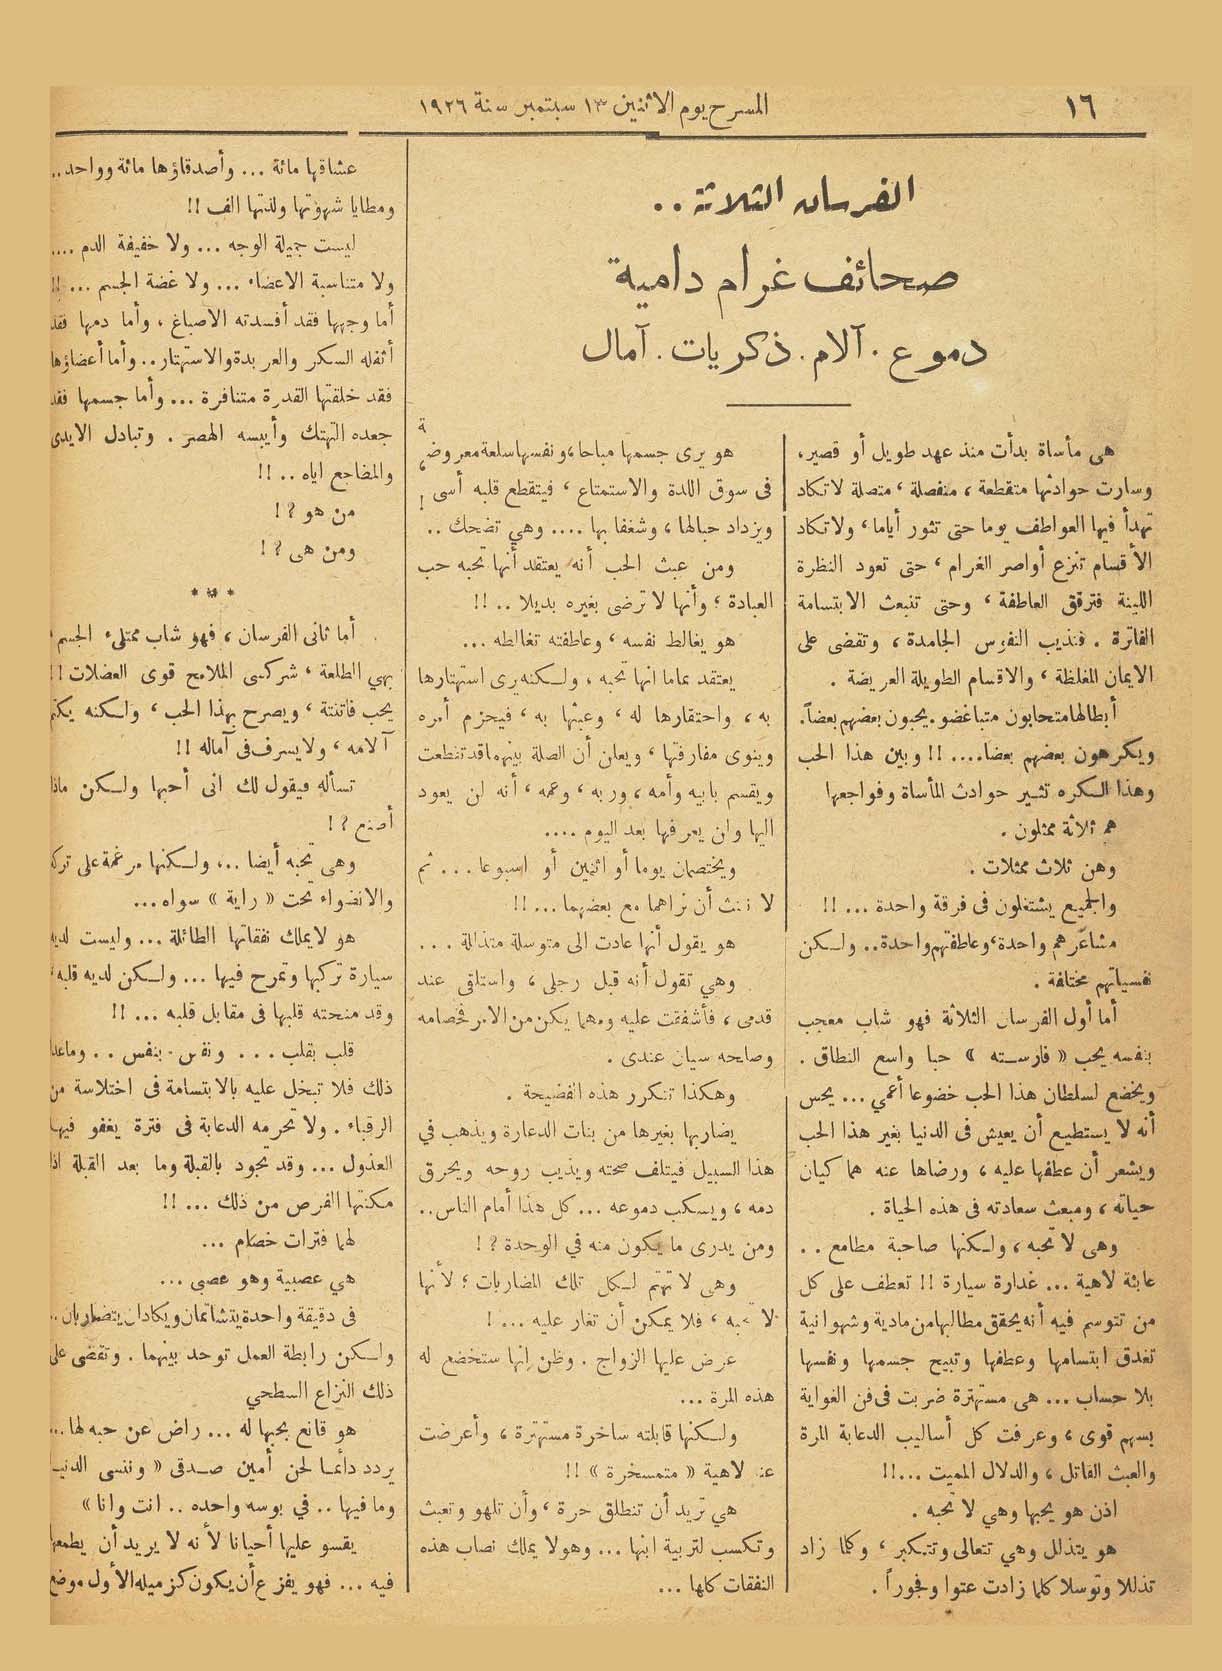 ١٦
المسرح يوم الاثنين ١٣ سبتمبر سنة ١٩٢٦
الفرسان الثلاثة . .
صحائف غرام دامية
دموع . آلام . ذكريات . آمال
هى مأساة بدأت منذ عهد طويل أو قصير،
وسارت حوادثها متقطعة، منفصلة، متصلة لا تكاد
تهدأ فيها العواطف يوما حتى تثور أياما، ولا تكاد
الأقسام تنزع أواصر الغرام، حتى تعود النظرة
اللينة فترقق العاطفة، وحتى تنبعث الابتسامة
الفاترة . فتذيب النفوس الجامدة، وتقضى على
الايمان المغلظة، والاقسام الطويلة العريضة .
أبطالها متحابون متباغضو . يحبون بعضهم بعضاً.
ويكرهون بعضهم بعضا.... !! وبين هذا الحب
وهذا الكره تثير حوادث المأساة وفواجعها
هم ثلاثة ممثلون .
وهن ثلاث ممثلات .
والجميع يشتغلون فى فرقة واحدة ... !!
مشاعرهم واحدة، وعاطفتهم واحدة.. ولكن
نفسياتهم مختلفة .
أما أول الفرسان الثلاثة فهو شاب معجب
بنفسه يحب « فارسته » حبا واسع النطاق .
ويخضع لسلطان هذا الحب خضوعا أعمي ... يحس
أنه لا يستطيع أن يعيش فى الدنيا بغير هذا الحب
ويشعر أن عطفها عليه، ورضاها عنه هما كيان
حياته، ومبعث سعادته فى هذه الحياة .
وهى لا تحبه، ولكنها صاحبة مطامع . .
عابثة لاهية ... غدارة سيارة !! تعطف على كل
من تتوسم فيه أنه يحقق مطالبها من مادية وشهوانية
تغدق ابتسامها وعطفها وتبيح جسمها ونفسها
بلا حساب ... هى مستهترة ضربت فى فن الغواية
بسهم قوى، وعرفت كل أساليب الدعابة المرة
والعبث القاتل، والدلال المميت ...!!
اذن هو يحبها وهي لا تحبه .
هو يتذلل وهي تتعالى وتتكبر، وكلما زاد
تذللا وتوسلا كلما زادت عتوا وفجوراً .
هو يرى جسمها مباحا، ونفسها سلعة معروضة
فى سوق اللذة والاستمتاع، فيتقطع قلبه أسى !
ويزداد حبالها، وشغفا بها .... وهي تضحك ..
ومن عبث الحب أنه يعتقد أنها تحبه حب
العبادة؛ وأنها لا ترضى بغيره بديلا .. !!
هو يغالط نفسه، وعاطفته تغالطه ...
يعتقد تماما انها تحبه، ولكنه يرى استهتارها
به، واحتقارها له، وعبثها به، فيحزم أمره
وينوى مفارقتها، ويعلن أن الصلة بينهما قد تقطعت
ويقسم بابيه وأمه، وربه، وعمه، أنه لن يعود
اليها ولن يعرفها بعد اليوم ....
ويختصمان يوما أو اثنين أو اسبوعا ... ثم
لا نلبث أن نراهما مع بعضهما ... !!
هو يقول أنها عادت الى متوسلة متذللة ...
وهي تقول أنه قبل رجلى، واستلقى عند
قدمى، فأشفقت عليه ومهما يكن من الامر فخصامه
وصلحه سيان عندى .
وهكذا تتكرر هذه الفضيحة .
يضاربها بغيرها من بنات الدعارة ويذهب في
هذا السبيل فيتلف صحته ويذيب روحه ويحرق
دمه، ويسكب دموعه ... كل هذا أمام الناس..
ومن يدرى ما يكون منه في الوحدة ؟ !
وهى لا تهتم لكل تلك المضاربات؛ لأنها
لا تحبه، فلا يمكن أن تغار عليه ... !
عرض عليها الزواج . وظن انها ستخضع له
هذه المرة ...
ولكنها قابلته ساخرة مستهترة، وأعرضت
عنه لاهية « متمسخرة » !!
هي تريد أن تنطلق حرة، وأن تلهو وتعبث
وتكسب لتربية ابنها ... وهو لا يملك نصاب هذه
النفقات كلها ...
عشاقها مائة ... وأصدقاؤها مائة وواحد..
ومطايا شهوتها ولذتها الف !!
ليست جميلة الوجه ... ولا خفيفة الدم ....
ولا متناسبة الاعضاء ... ولا غضة الجسم ... !!
أما وجهها فقد أفسدته الاصباغ، وأما دمها فقد
أثقله السكر والعربدة والاستهتار .. وأما أعضاؤها
فقد خلقتها القدرة متنافرة ... وأما جسمها فقد
جعده التهتك وأيبسه الهصر . وتبادل الايدى
والمضاجع اياه .. !!
من هو ؟ !
ومن هى ؟ !
* * *
أما ثانى الفرسان، فهو شاب ممتلىء الجسم،
بهي الطلعة، شركسى الملامح قوى العضلات !!
يحب فاتنتة، ويصرح بهذا الحب، ولكنه يكتم
آلامه، ولا يسرف فى آماله !!
تسأله فيقول لك انى أحبها ولكن ماذا
أصنع ؟ !
وهى تحبه أيضا ... ولكنها مرغمة على تركه
والانضواء تحت « راية » سواه...
هو لا يملك نفقاتها الطائلة ... وليست لديه
سيارة تركبها وتمرح فيها ... ولكن لديه قلبه،
وقد منحته قلبها فى مقابل قلبه ... !!
قلب بقلب ... ونفس بنفس .. وماعدا
ذلك فلا تبخل عليه بالابتسامة فى اختلاسة من
الرقباء . ولا تحرمه الدعابة فى فترة يغفو فيها
العذول ... وقد تجود بالقبلة وما بعد القبلة اذا
مكنتها الفرص من ذلك ... !!
لهما فترات خصام ...
هي عصبية وهو عصبى ...
فى دقيقة واحدة يتشاتمان ويكادان يتضاربان ..
ولكن رابطة العمل توحد بينهما . وتقضى على
ذلك النزاع السطحي
هو قانع بحبها له ... راض عن حبه لها ...
يردد دائما لحن أمين صدقى « وننسى الدنيا
وما فيها .. في بوسه واحده .. انت وانا »
يقسو عليها أحيانا لأنه لا يريد أن يطمعها
فيه ... فهو يفزع أن يكون كزميله الأول موضع